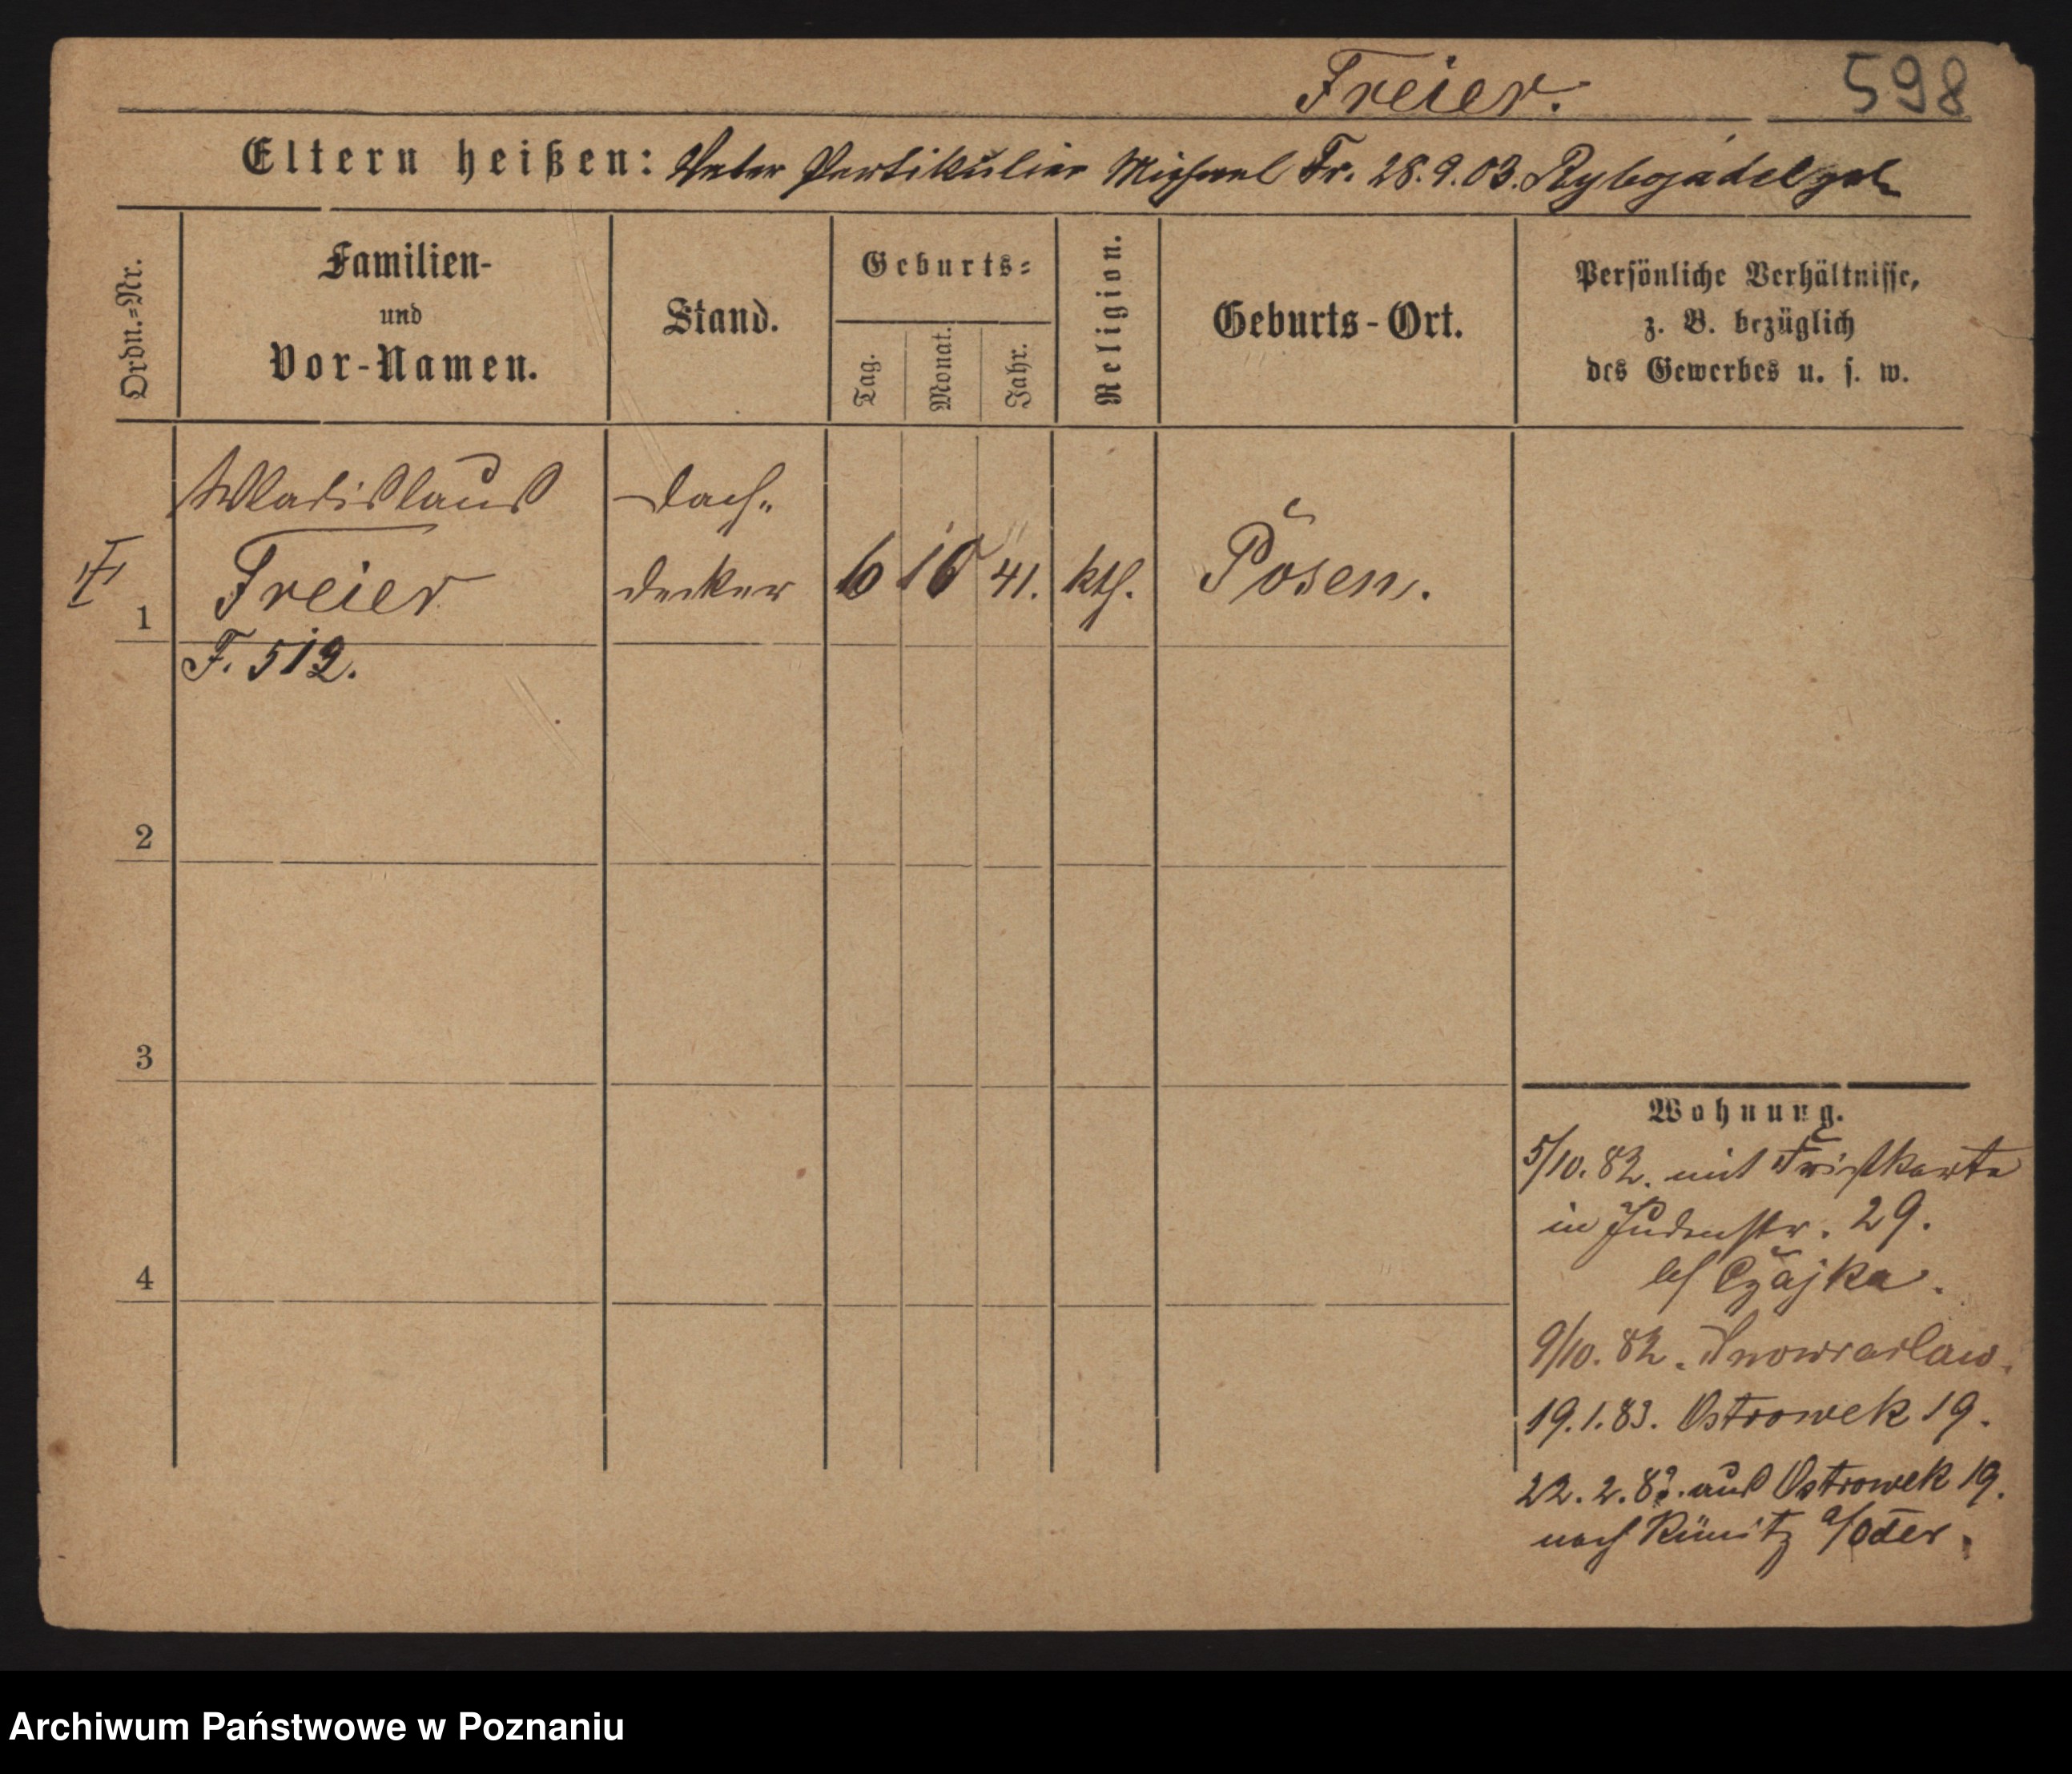 Freier.
598
Eltern heißen: Vater Partikulier Michael Fr. 28.9.03. Rybojadel geb.
Ordn.=Nr.
Familien-
und
Vor-Namen.
Stand.
Geburts=
Tag.
Monat.
Jahr.
Religion.
Geburts-Ort.
Persönliche Verhältnisse,
z. B. bezüglich
des Gewerbes u. s. w.
1
Wladislaus
Freier
Dach=
decker
6
10
41.
kth.
Posen.
F. 512.
2
3
4
Wohnung.
5/10. 82. mit Fristkarte
in Judenstr. 29.
bei Czajka.
9/10. 82. Inowraclaw.
19.1.83. Ostrowek 19.
22.2.83. aus Ostrowek 19.
nach a/Oder.
Archiwum Państwowe w Poznaniu